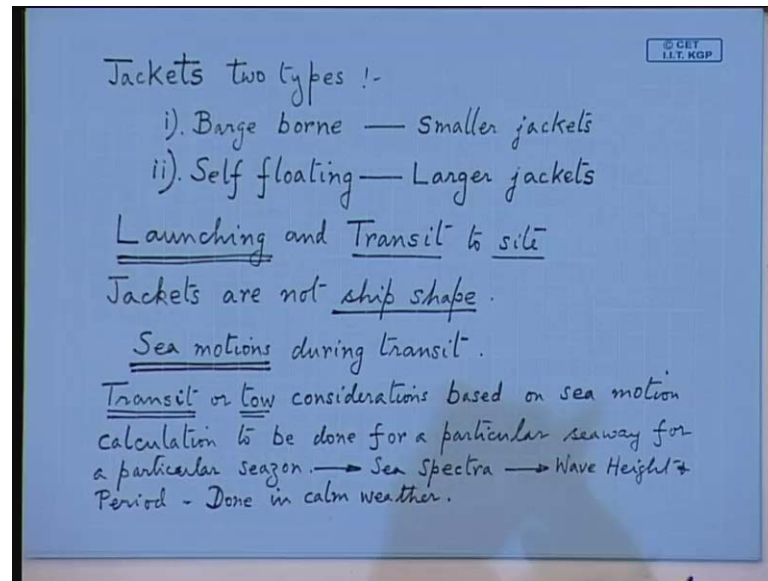 © CET
I.I.T. KGP
Jackets two types :-
i). Barge borne — Smaller jackets
ii). Self floating — Larger jackets
Launching and Transit to site
Jackets are not ship shape.
Sea motions during transit.
Transit or tow considerations based on sea motion
calculation to be done for a particular seaway for
a particular seazon. → Sea Spectra → Wave Height &
Period - Done in calm weather.